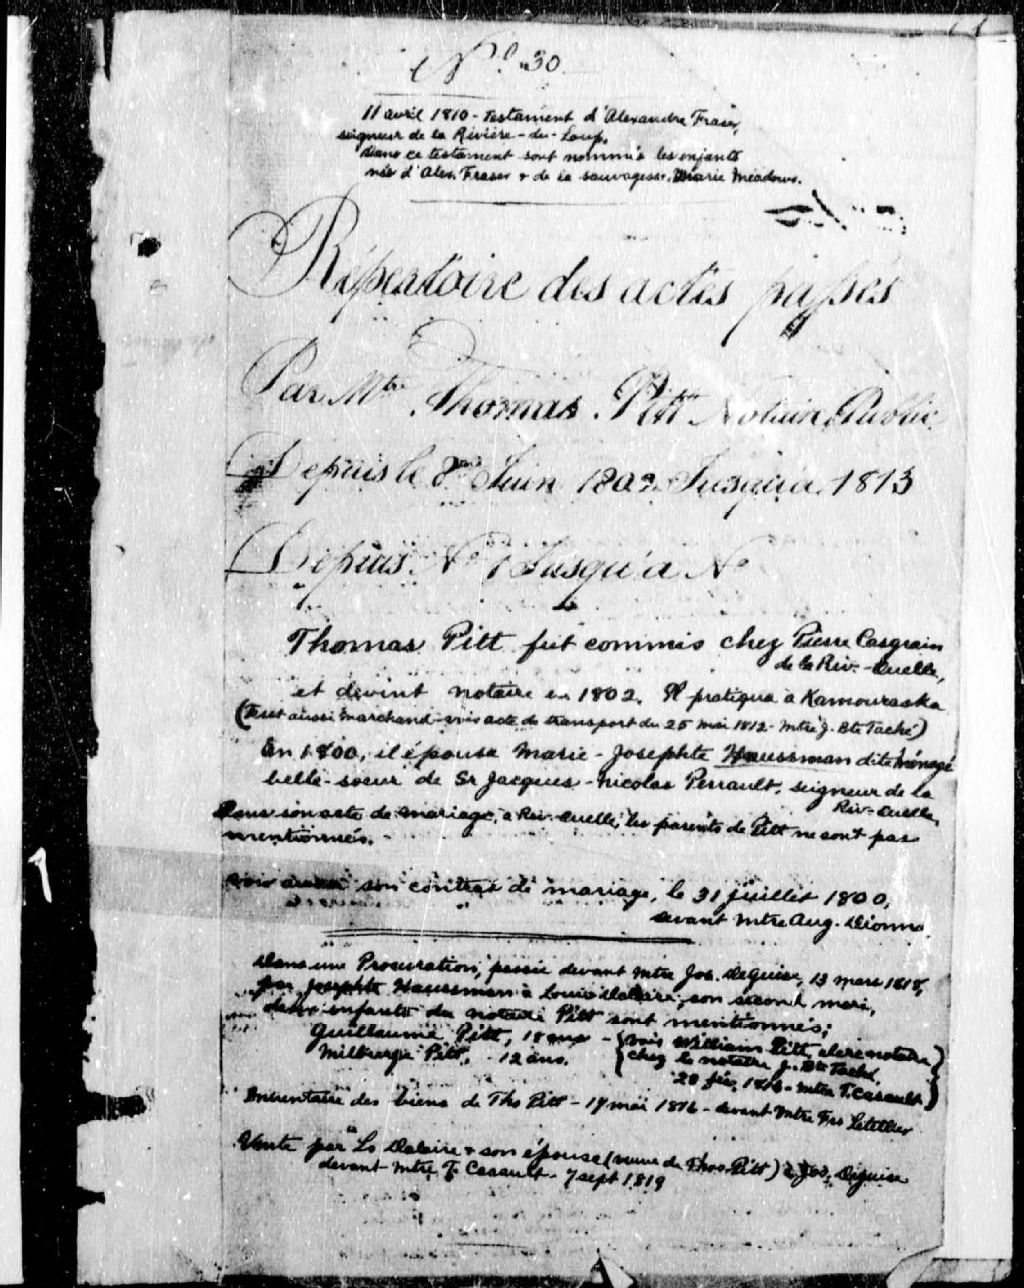 N° 30
11 avril 1810 - testament d'Alexandre Fraser,
seigneur de la Rivière-du-Loup.
dans ce testament sont nommés les enfants
nés d'Alex. Fraser & de la sauvagesse. Marie Meadows.
Répertoire des actes passés
Par Mtre Thomas Pitt Notaire Public
Depuis le Juin 1802 Jusqu'a 1813
Depuis N° 1 Jusqu'a N°
Thomas Pitt fut commis chez Pierre Casgrain
de la Riv.-Ouelle,
et devint notaire en 1802. Il pratiqua à Kamouraska
(Fut aussi marchand - vois acte de transport du 25 mai 1812 - Mtre J. Bte Taché)
En 1800, il épousa Marie-Josephte Haussman dite Ménagé
belle-soeur de Sr Jacques-Nicolas Perrault, seigneur de la
Riv-Ouelle,
Dans son acte de mariage, à Riv-Ouelle, les parents de Pitt ne sont pas
mentionnés.
son contrat de mariage, le 31 juillet 1800,
devant Mtre Aug. Dionne.
Dans une Procuration, passée devant Mtre Jos. Deguise, 13 mars 1818,
par Josephte Haussman à Louis Dalaire, son second mari,
deux enfants du notaire Pitt sont mentionnés;
Guillaume Pitt, 18 ans - (vois William Pitt, clerc notaire)
Pitt, 12 ans. (chez le notaire J. Bte Taché,
28 fév. - Mtre T. Casault)
Inventaire des biens de Tho Pitt - 17 mai 1816 - devant Mtre Frs Letellier
Vente par Ls Dalaire & son épouse (veuve de Thos. Pitt) à Jos. Deguise
devant Mtre T. Casault. 7 sept 1819